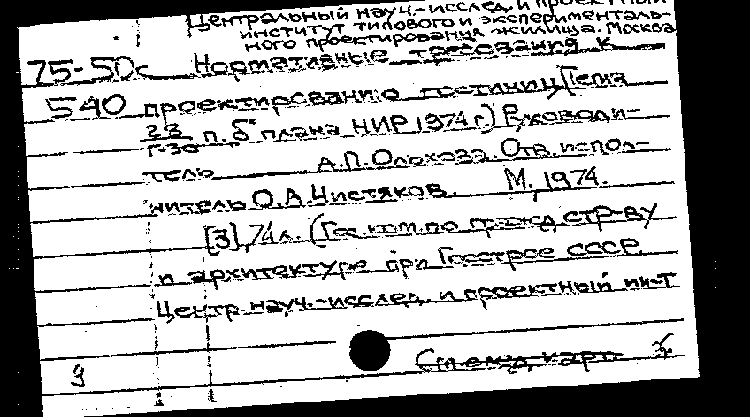 Центральный науч.-исслед. и проектный
институт типового и эксперименталь-
ного проектирования жилища. Москва
75-50с Нормативные требования к
540 проектированию гостиниц [Тема
33 п. 5 плана НИР 1974 г.) Руководи-
г-30
тель А.П. Ольхова. Отв. испол-
нитель О.А. Чистяков. М., 1974.
[3], 74 л. (Гос. ком. по гражд. стр-ву
и архитектуре при Госстрое СССР.
Центр. науч.-исслед. и проектный ин-т
См. след. карт.
9